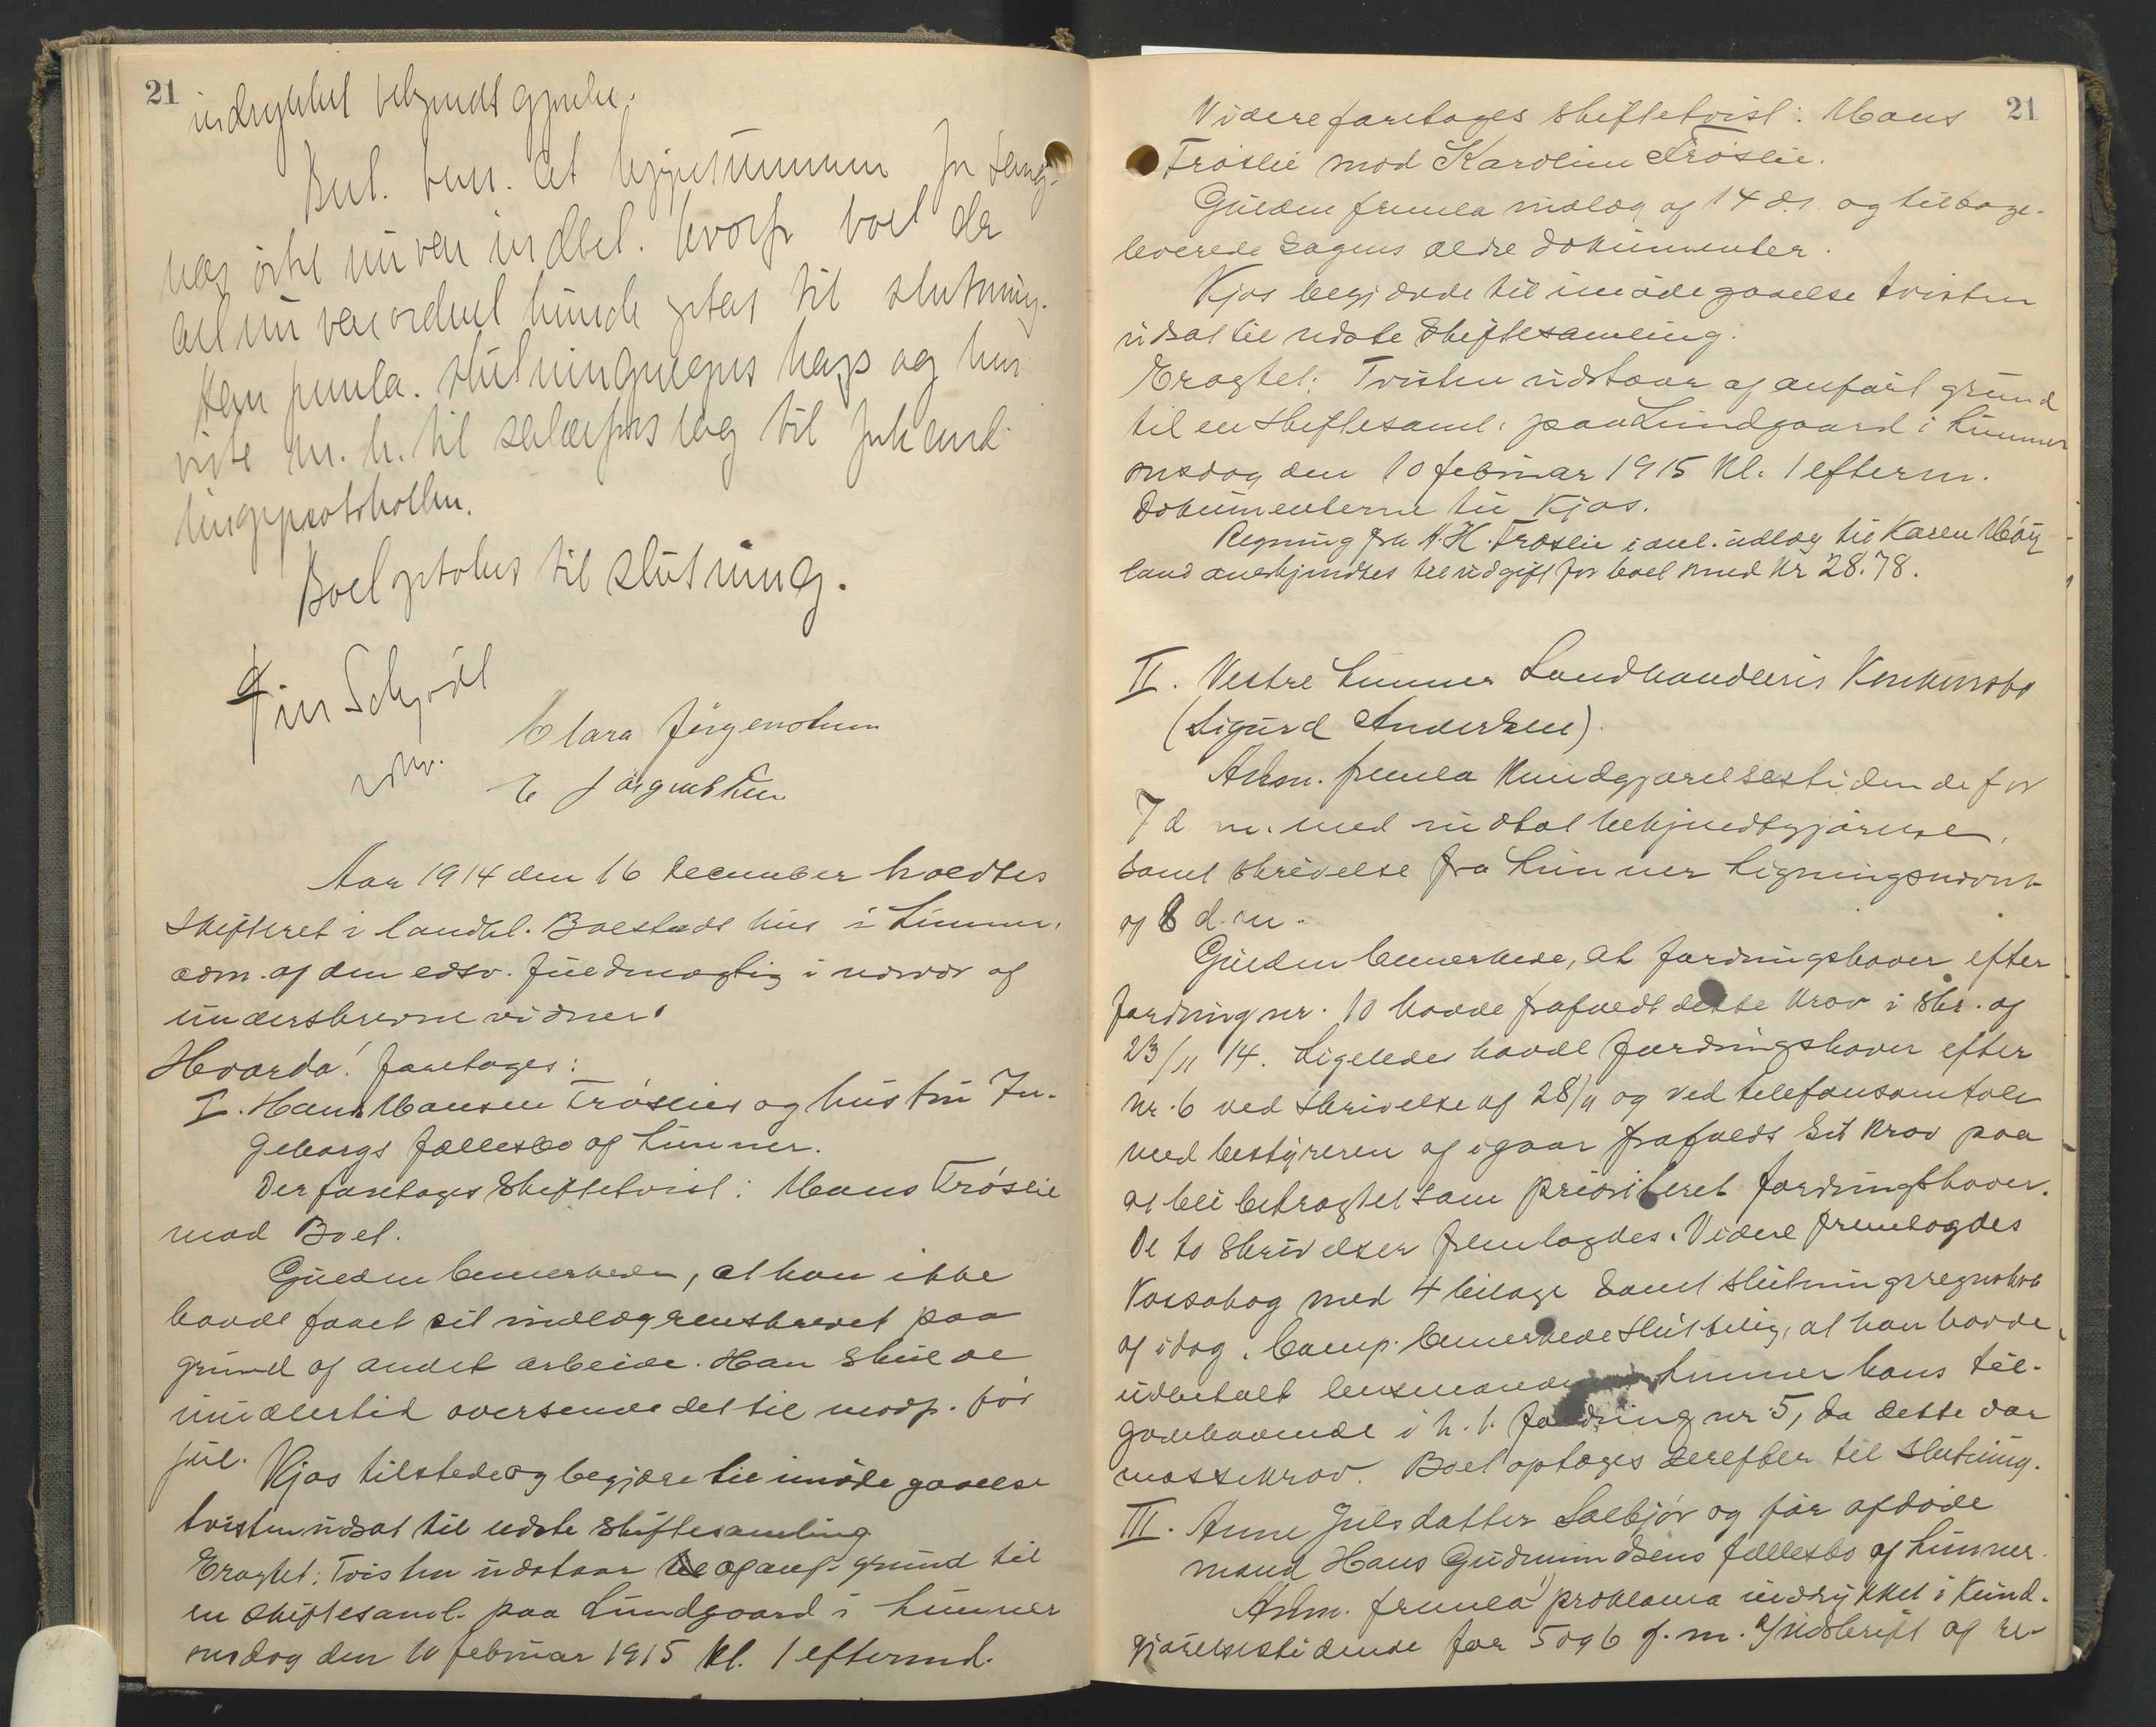 21
indrykket bekjendtgjørelse.
Best. bem. at kjøpesummen for
nu var indbet. hvorfor boet da
alt nu var ordnet kunde optas til slutning.
Han fremla slutningsregnskap og hen
viste m. h. til salærforslag til forhand
lingsprotokollen.
Boet optokes til slutning.
Schjødt
Clara Jørgensen
E Jørgensen
Aar 1914 den 16 december holdtes
skifteret i landhl. Bolstads hus i Lunner,
adm. af den edsv. fuldmægtig i nærvær af
underskrevne vidner.
Hvorda! foretages:
I. Hans Hansen Frøslies og hustru In-
geborgs fællesbo af Lunner.
Der foretages Skiftetvist: Hans Frøslie
mod Boet.
Gulden bemerkede, at han ikke
havde faaet sit indlæg renskrevet paa
grund af andet arbeide. Han skulde
imidlertid oversende det til modp. før
jul.
Kjos tilstede og begjære til imødegaaelse
tvisten udsat til næste skiftesamling
Eragtet: Tvisten udstaar af anf. grund til
en skiftesaml. paa Lundgaard i Lunner
onsdag den 10 februar 1915 kl. 1 eftermd.
21
Videre foretages skiftetvist: Hans
Frøslie mod Karoline Frøslie.
Gulden fremla indlæg af 14 ds. og tilbage-
leverede sagens ældre dokumenter.
Kjos begjærede til imødegaaelse tvisten
udsat til næste Skiftesamling.
Eragtet: Tvisten udstaar af anført grund
til en skiftesaml. paa Lundgaard i Lunner
onsdag den 10 februar 1915 kl. 1 efterm.
Dokumenterne til Kjos.
Regning fra H. H. Frøslie i anl. udlæg til Karen Høy
land anerkjendtes til udgift for boet med kr 28.78.
II. Vestre Lunner Landhandleris Konkursbo
(Sigurd Andersen).
Adm. fremla Kundgjørelsestidende for
7 d. m. med indtat bekjendtgjørelse,
samt skrivelse fra Lunner Ligningsnævnd
af 8 d. m.
Gulden bemerkede, at fordringshaver efter
fordring nr. 10 havde frafaldt dette krav i skr. af
23/11 14. Ligeledes havde fordringshaver efter
nr. 6 ved skrivelse af 28/11 og ved telefonsamtale
med bestyreren af igaar frafaldt sit krav paa
at bli betragtet som prioriteret fordringshaver.
De to skrivelser fremlagdes. Videre fremlagdes
Kassabog med 4 bilage samt slutningsregnskab
af idag. Comp. bemerkede sluttelig, at han havde
udbetalt lensmanden i Lunner hans til-
godehavende i h. t. fordring nr. 5, da dette var
massekrav. Boet optages derefter til slutning.
III. Anne Julsdatter Solbjør og før afdøde
mand Hans Gudmundsens fællesbo af Lunner.
Adm. fremla 1) proklama indrykket i Kund-
gjørelsestidende for 5 og 6 f. m. Indskrift af re-